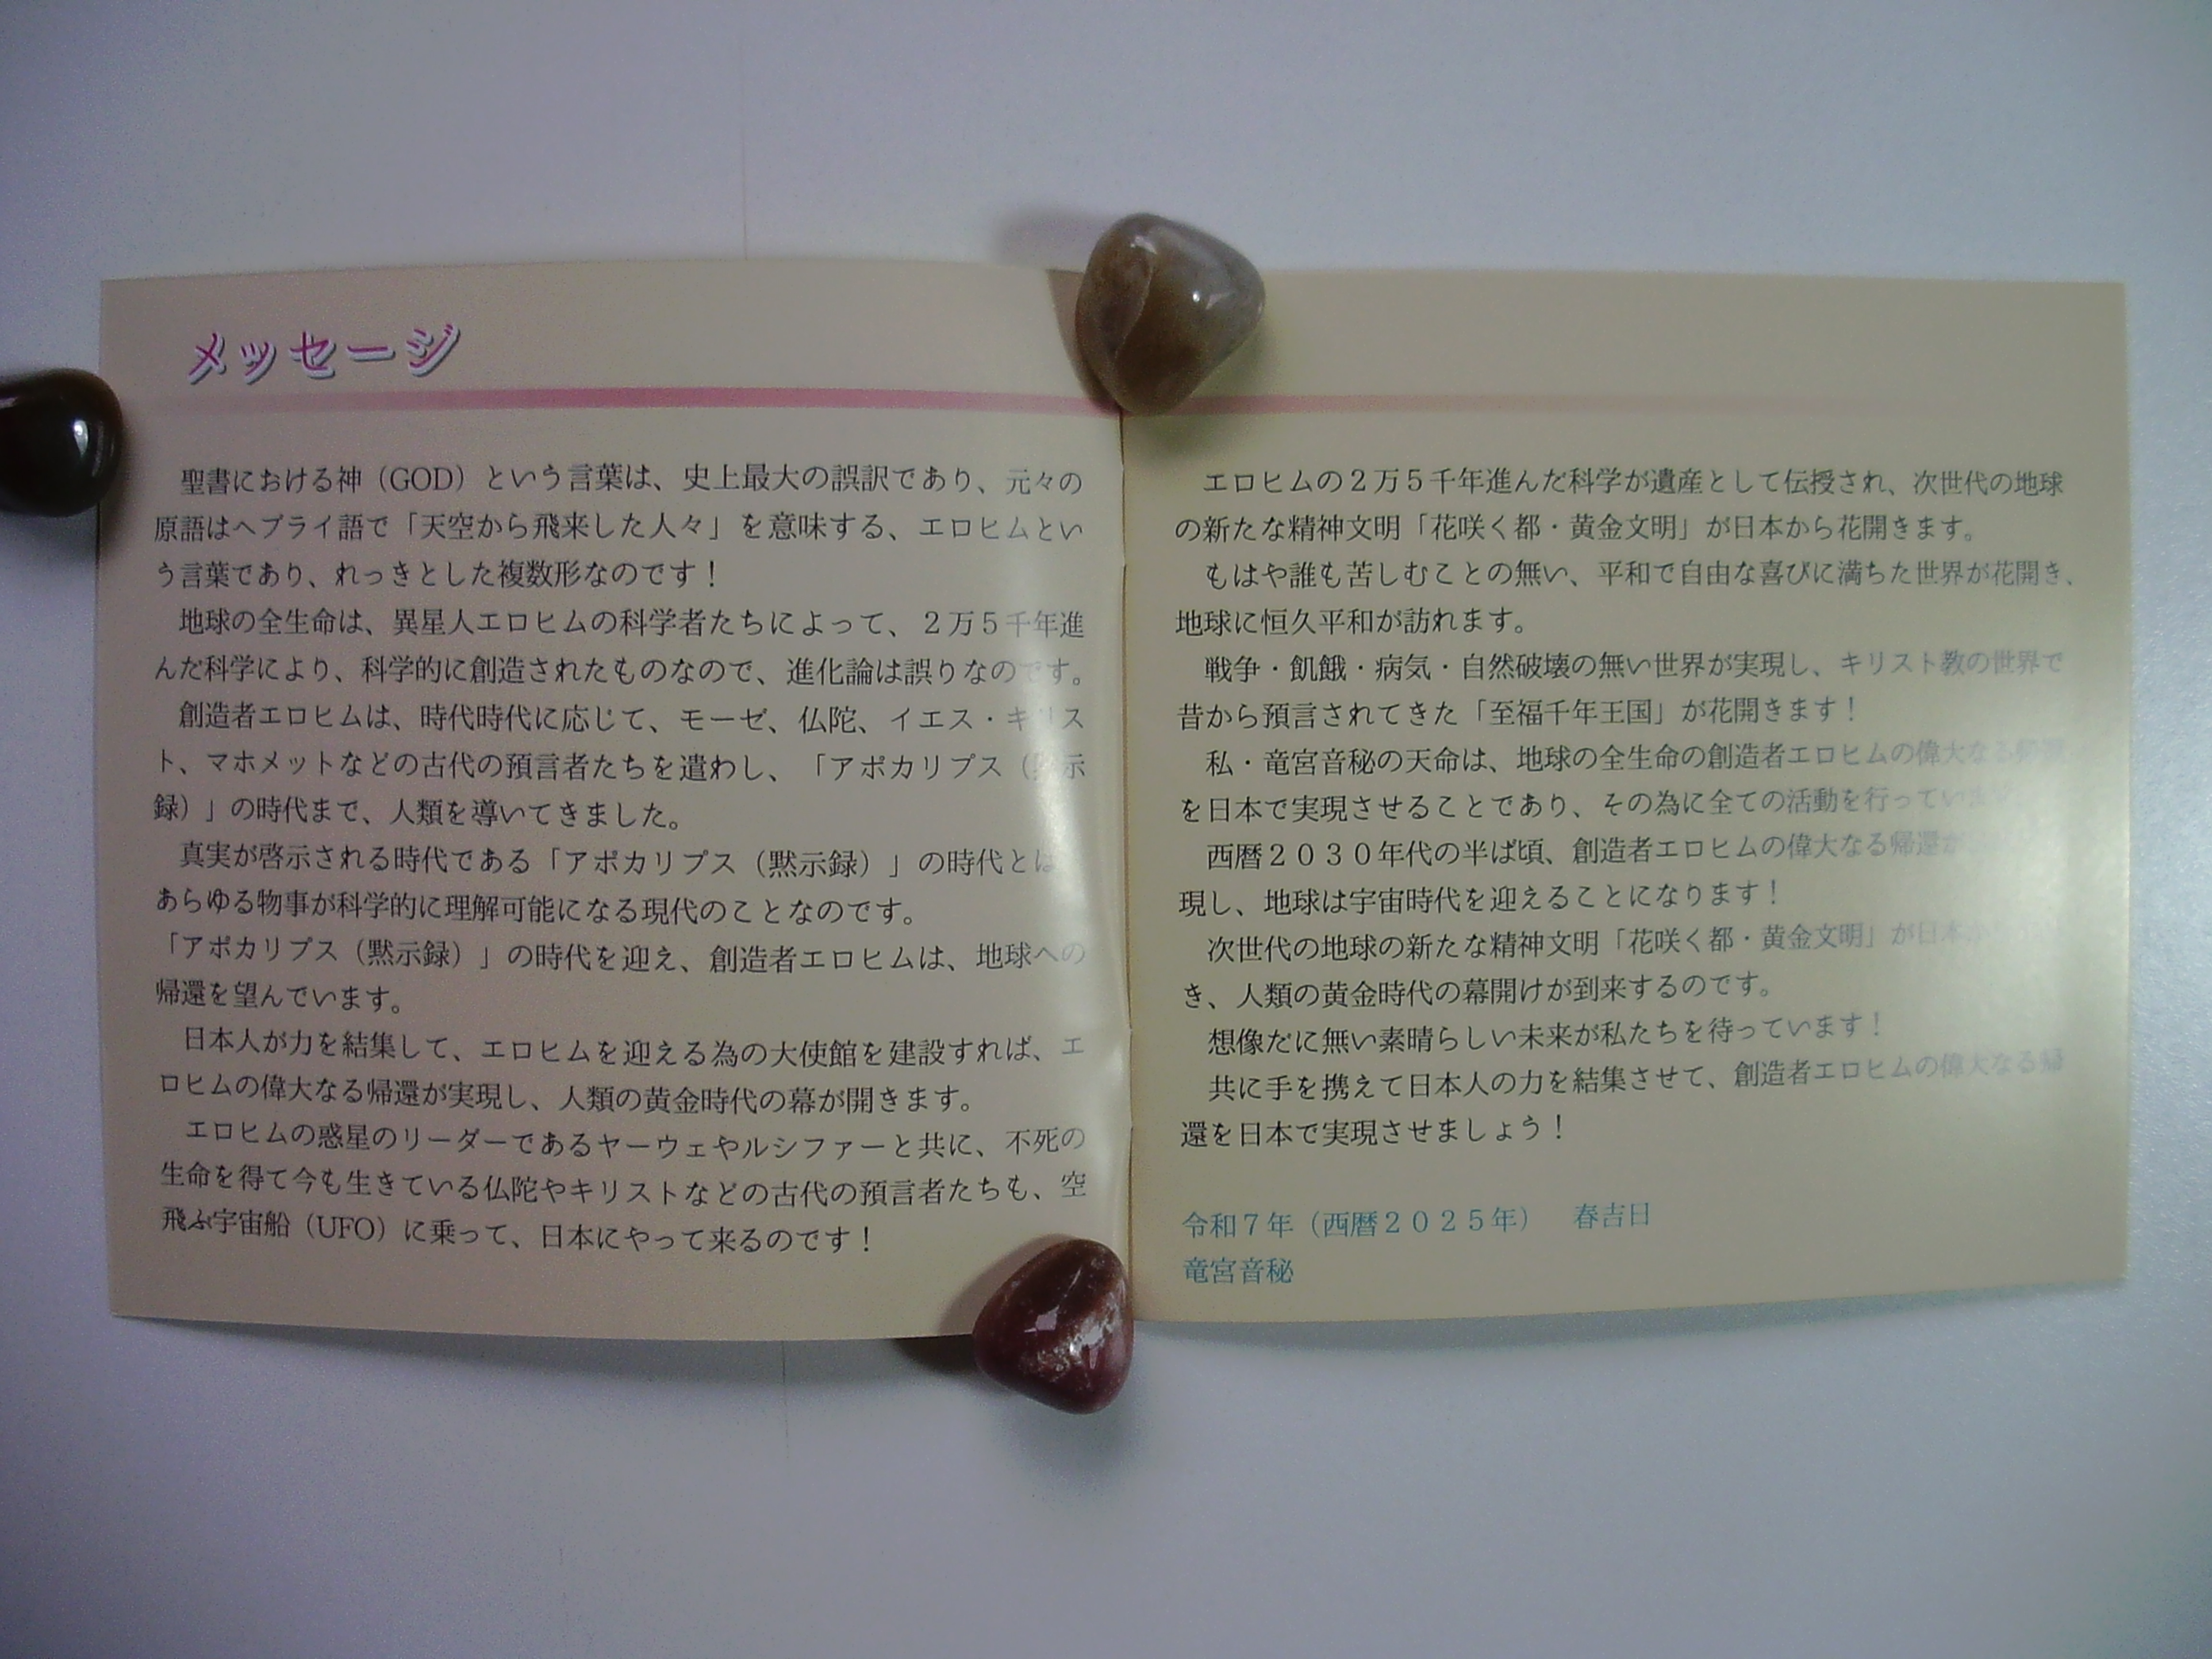 メッセージ
聖書における神(GOD)という言葉は、史上最大の誤訳であり、元々の
原語はヘブライ語で「天空から飛来した人々」を意味する、エロヒムとい
う言葉であり、れっきとした複数形なのです!
地球の全生命は、異星人エロヒムの科学者たちによって、2万5千年進
んだ科学により、科学的に創造されたものなので、進化論は誤りなのです。
創造者エロヒムは、時代時代に応じて、モーゼ、仏陀、イエス・キリス
ト、マホメットなどの古代の預言者たちを遣わし、「アポカリプス(黙示
録)」の時代まで、人類を導いてきました。
真実が啓示される時代である「アポカリプス(黙示録)」の時代とは
あらゆる物事が科学的に理解可能になる現代のことなのです。
「アポカリプス(黙示録)」の時代を迎え、創造者エロヒムは、地球への
帰還を望んでいます。
日本人が力を結集して、エロヒムを迎える為の大使館を建設すれば、エ
ロヒムの偉大なる帰還が実現し、人類の黄金時代の幕が開きます。
エロヒムの惑星のリーダーであるヤーウェやルシファーと共に、不死の
生命を得て今も生きている仏陀やキリストなどの古代の預言者たちも、空
飛ぶ宇宙船(UFO)に乗って、日本にやって来るのです!
エロヒムの2万5千年進んだ科学が遺産として伝授され、次世代の地球
の新たな精神文明「花咲く都・黄金文明」が日本から花開きます。
もはや誰も苦しむことの無い、平和で自由な喜びに満ちた世界が花開き、
地球に恒久平和が訪れます。
戦争・飢餓・病気・自然破壊の無い世界が実現し、キリスト教の世界で
昔から預言されてきた「至福千年王国」が花開きます!
私・竜宮音秘の天命は、地球の全生命の創造者エロヒムの偉大なる帰還
を日本で実現させることであり、その為に全ての活動を行ってい
西暦2030年代の半ば頃、創造者エロヒムの偉大なる帰還が
現し、地球は宇宙時代を迎えることになります!
次世代の地球の新たな精神文明「花咲く都・黄金文明」が日本
き、人類の黄金時代の幕開けが到来するのです。
想像だに無い素晴らしい未来が私たちを待っています!
共に手を携えて日本人の力を結集させて、創造者エロヒムの偉大なる帰
還を日本で実現させましょう!
令和7年(西暦2025年) 春吉日
竜宮音秘